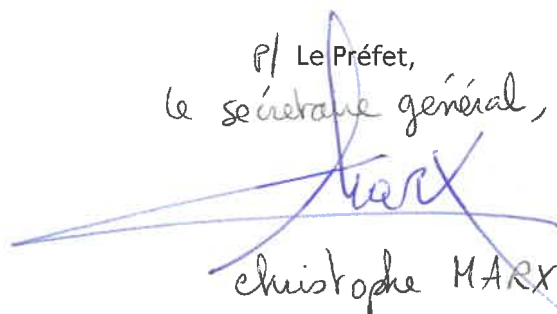 P/ Le Préfet,
le secrétaire général,
Marx
christophe MARX